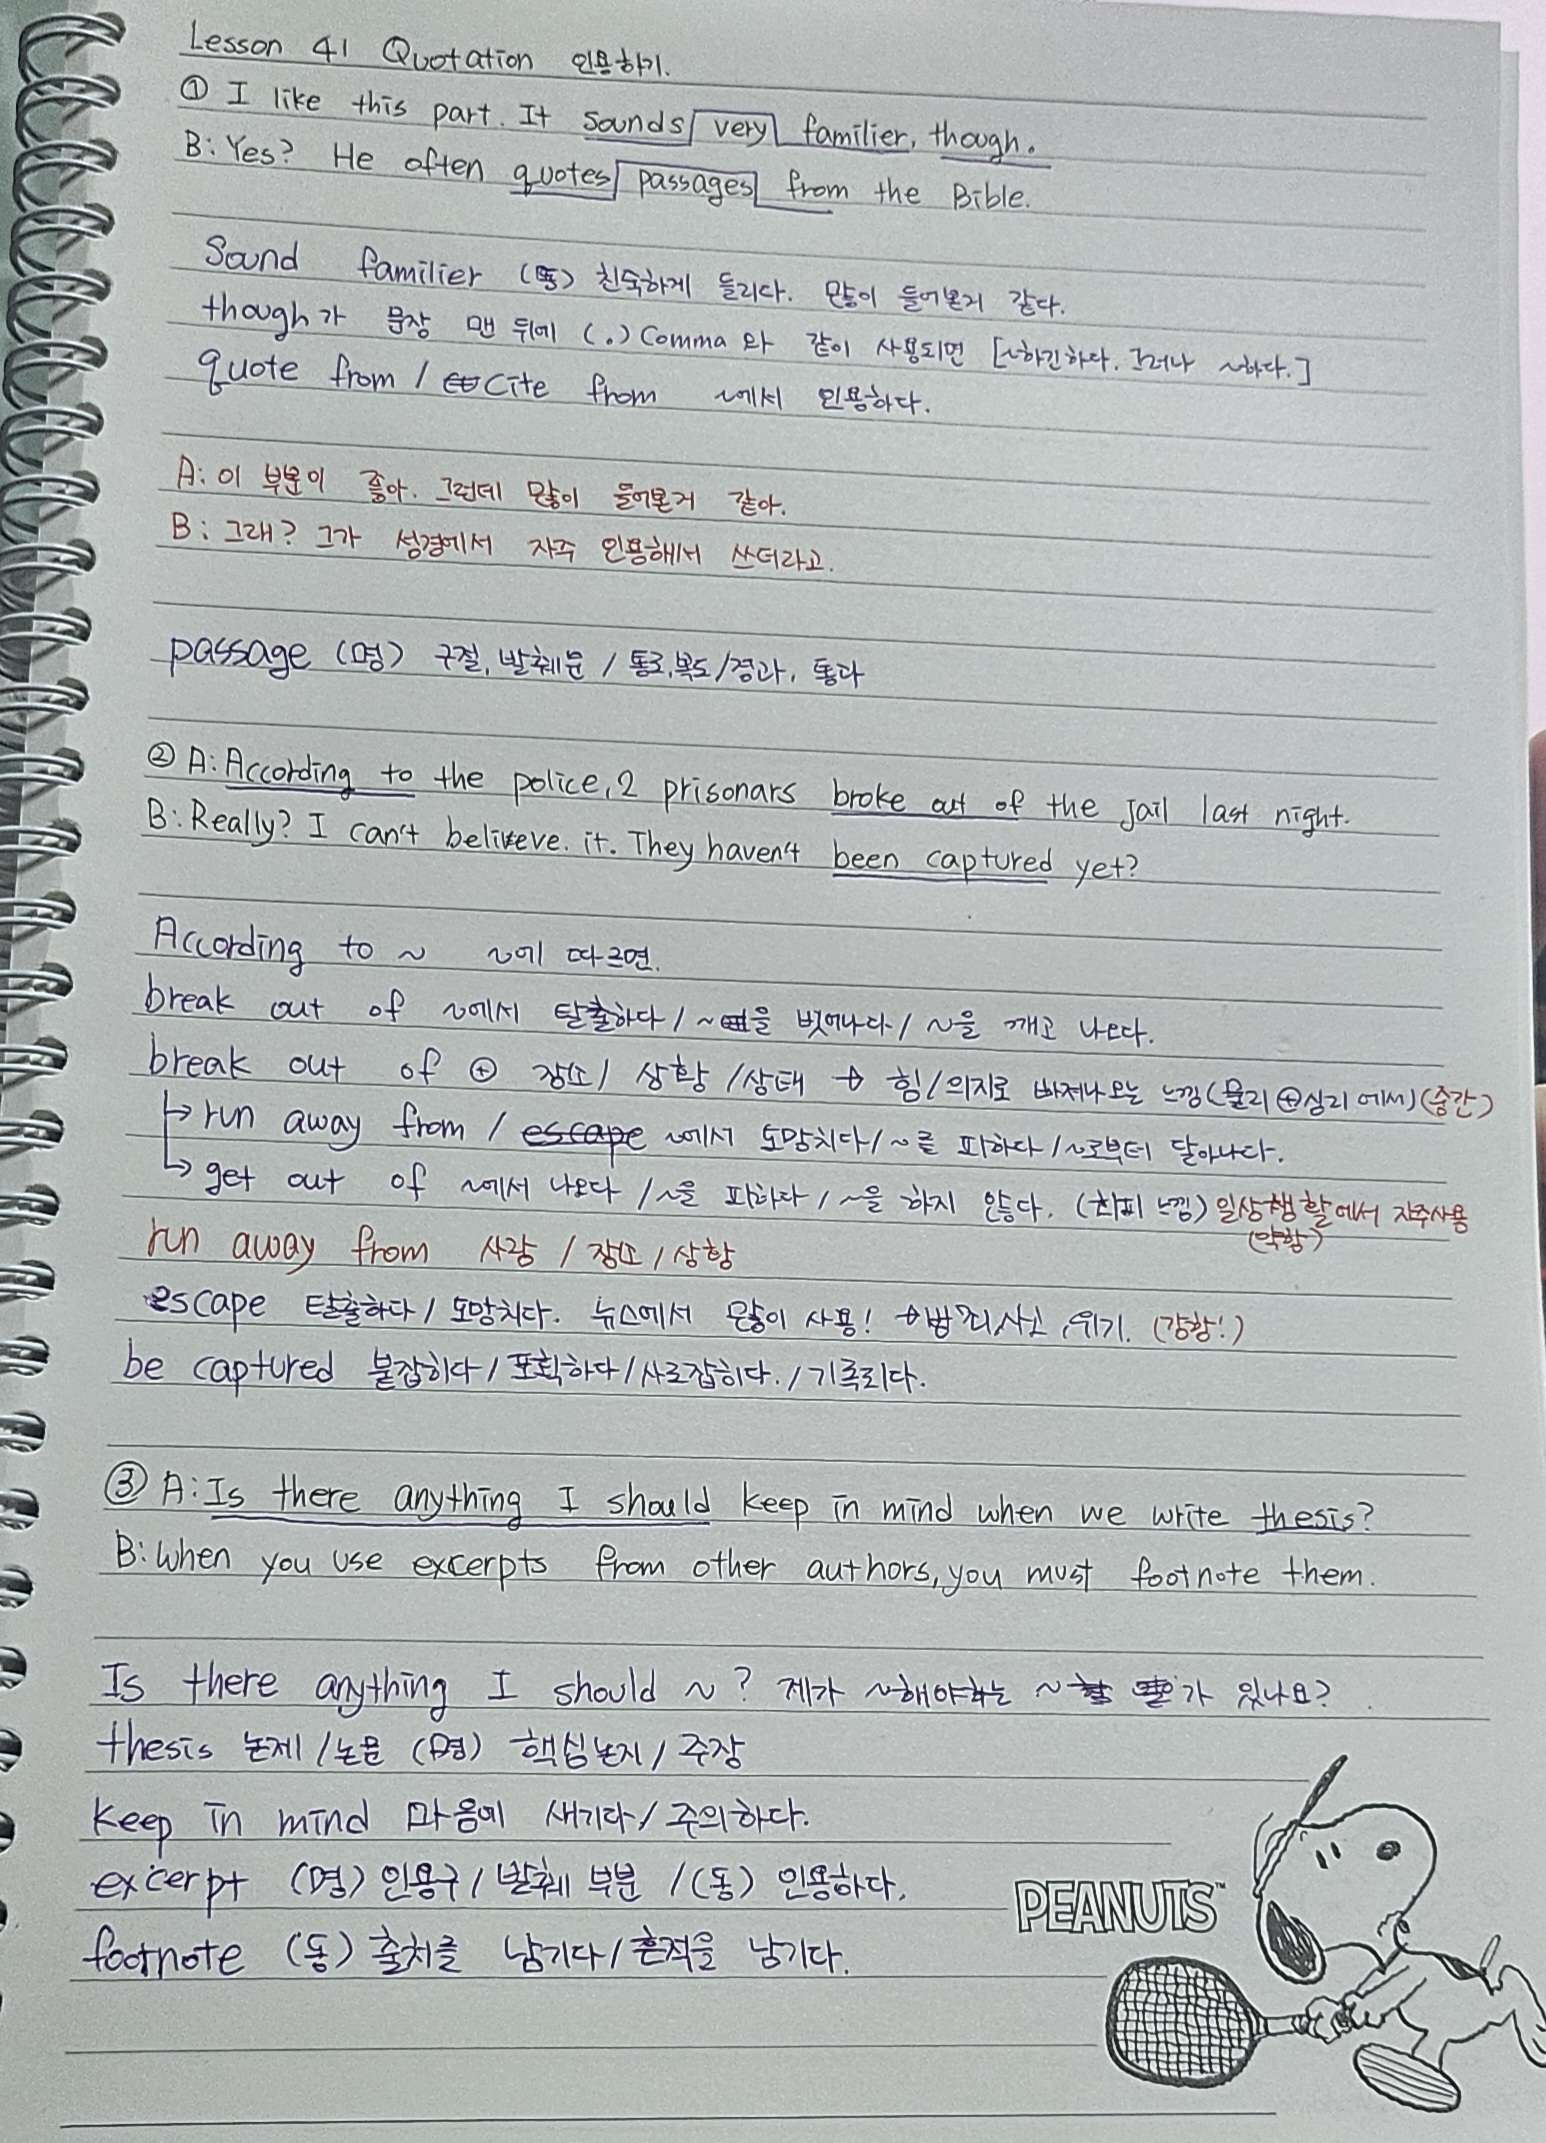 Lesson 41 Quotation 인용하기.
① I like this part. It sounds very familier, though.
B: Yes? He often quotes passages from the Bible.
Sound familier (동) 친숙하게 들리다. 많이 들어본거 같다.
though가 문장 맨 뒤에 (.) Comma와 같이 사용되면 [~하긴하다. 그러나 ~하다.]
quote from / cite from ~에서 인용하다.
A: 이 부분이 좋아. 그런데 많이 들어본거 같아.
B: 그래? 그가 성경에서 자주 인용해서 쓰더라고.
passage (명) 구절, 발췌문 / 통로, 복도/경과, 통과
② A: According to the police, 2 prisonars broke out of the jail last night.
B: Really? I can't believe. it. They haven't been captured yet?
According to ~ ~에 따르면.
break out of ~에서 탈출하다 / ~을 벗어나다 / ~을 깨고 나오다.
break out of ⊕ 장소 / 상황 / 상태 → 힘/의지로 빠져나오는 느낌 (물리⊕심리에서) (중간)
↳ run away from / escape ~에서 도망치다 / ~를 피하다 / ~로부터 달아나다.
↳ get out of ~에서 나오다 / ~을 피하다 / ~을 하지 않다. (회피 느낌) 일상생활에서 자주사용
(약함)
run away from 사람 / 장소 / 상황
escape 탈출하다 / 도망치다. 뉴스에서 많이 사용! → 범죄, 사고, 위기. (강함!)
be captured 붙잡히다 / 포획하다 / 사로잡히다. / 기록되다.
③ A: Is there anything I should keep in mind when we write thesis?
B: When you use excerpts from other authors, you must footnote them.
Is there anything I should ~? 제가 ~해야하는 ~가 있나요?
thesis 논제 / 논문 (명) 핵심논지 / 주장
keep in mind 마음에 새기다 / 주의하다.
excerpt (명) 인용구 / 발췌 부분 / (동) 인용하다.
footnote (동) 출처를 남기다 / 흔적을 남기다.
PEANUTS™